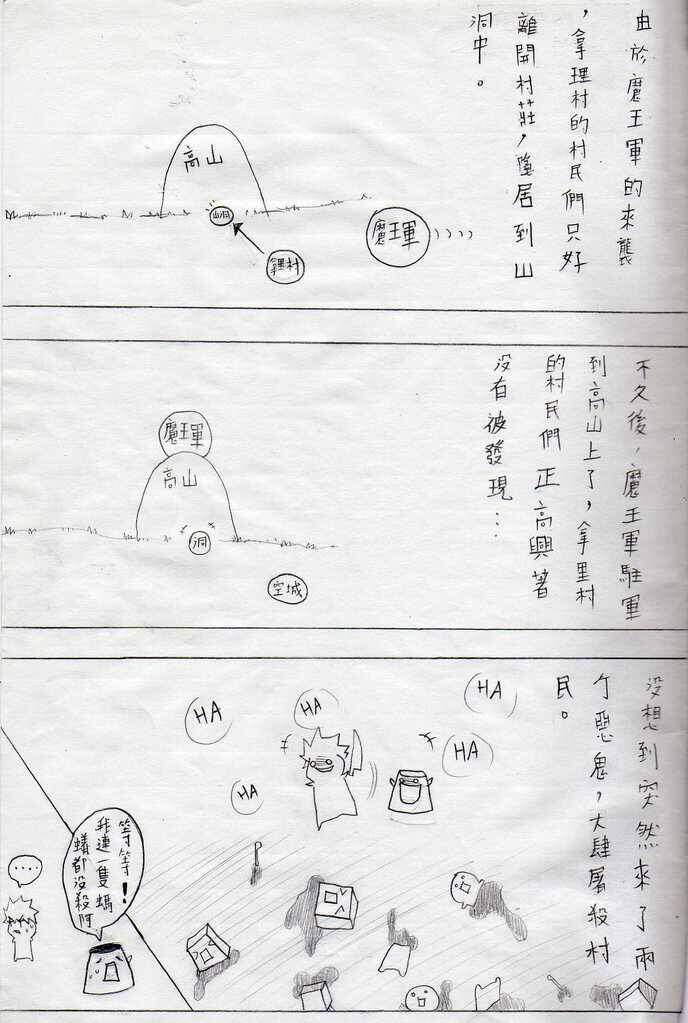 由於魔王軍的來襲
，拿理村的村民們只好
離開村莊，隱居到山
洞中。
高山
山洞
魔王軍
拿理村
不久後，魔王軍駐軍
到高山上了，拿里村
的村民們正高興著
沒有被發現…
魔王軍
高山
洞
空城
沒想到突然來了兩
个惡鬼，大肆屠殺村
民。
HA
HA
HA
HA
HA
等等！
我連一隻螞
蟻都沒殺阿
...